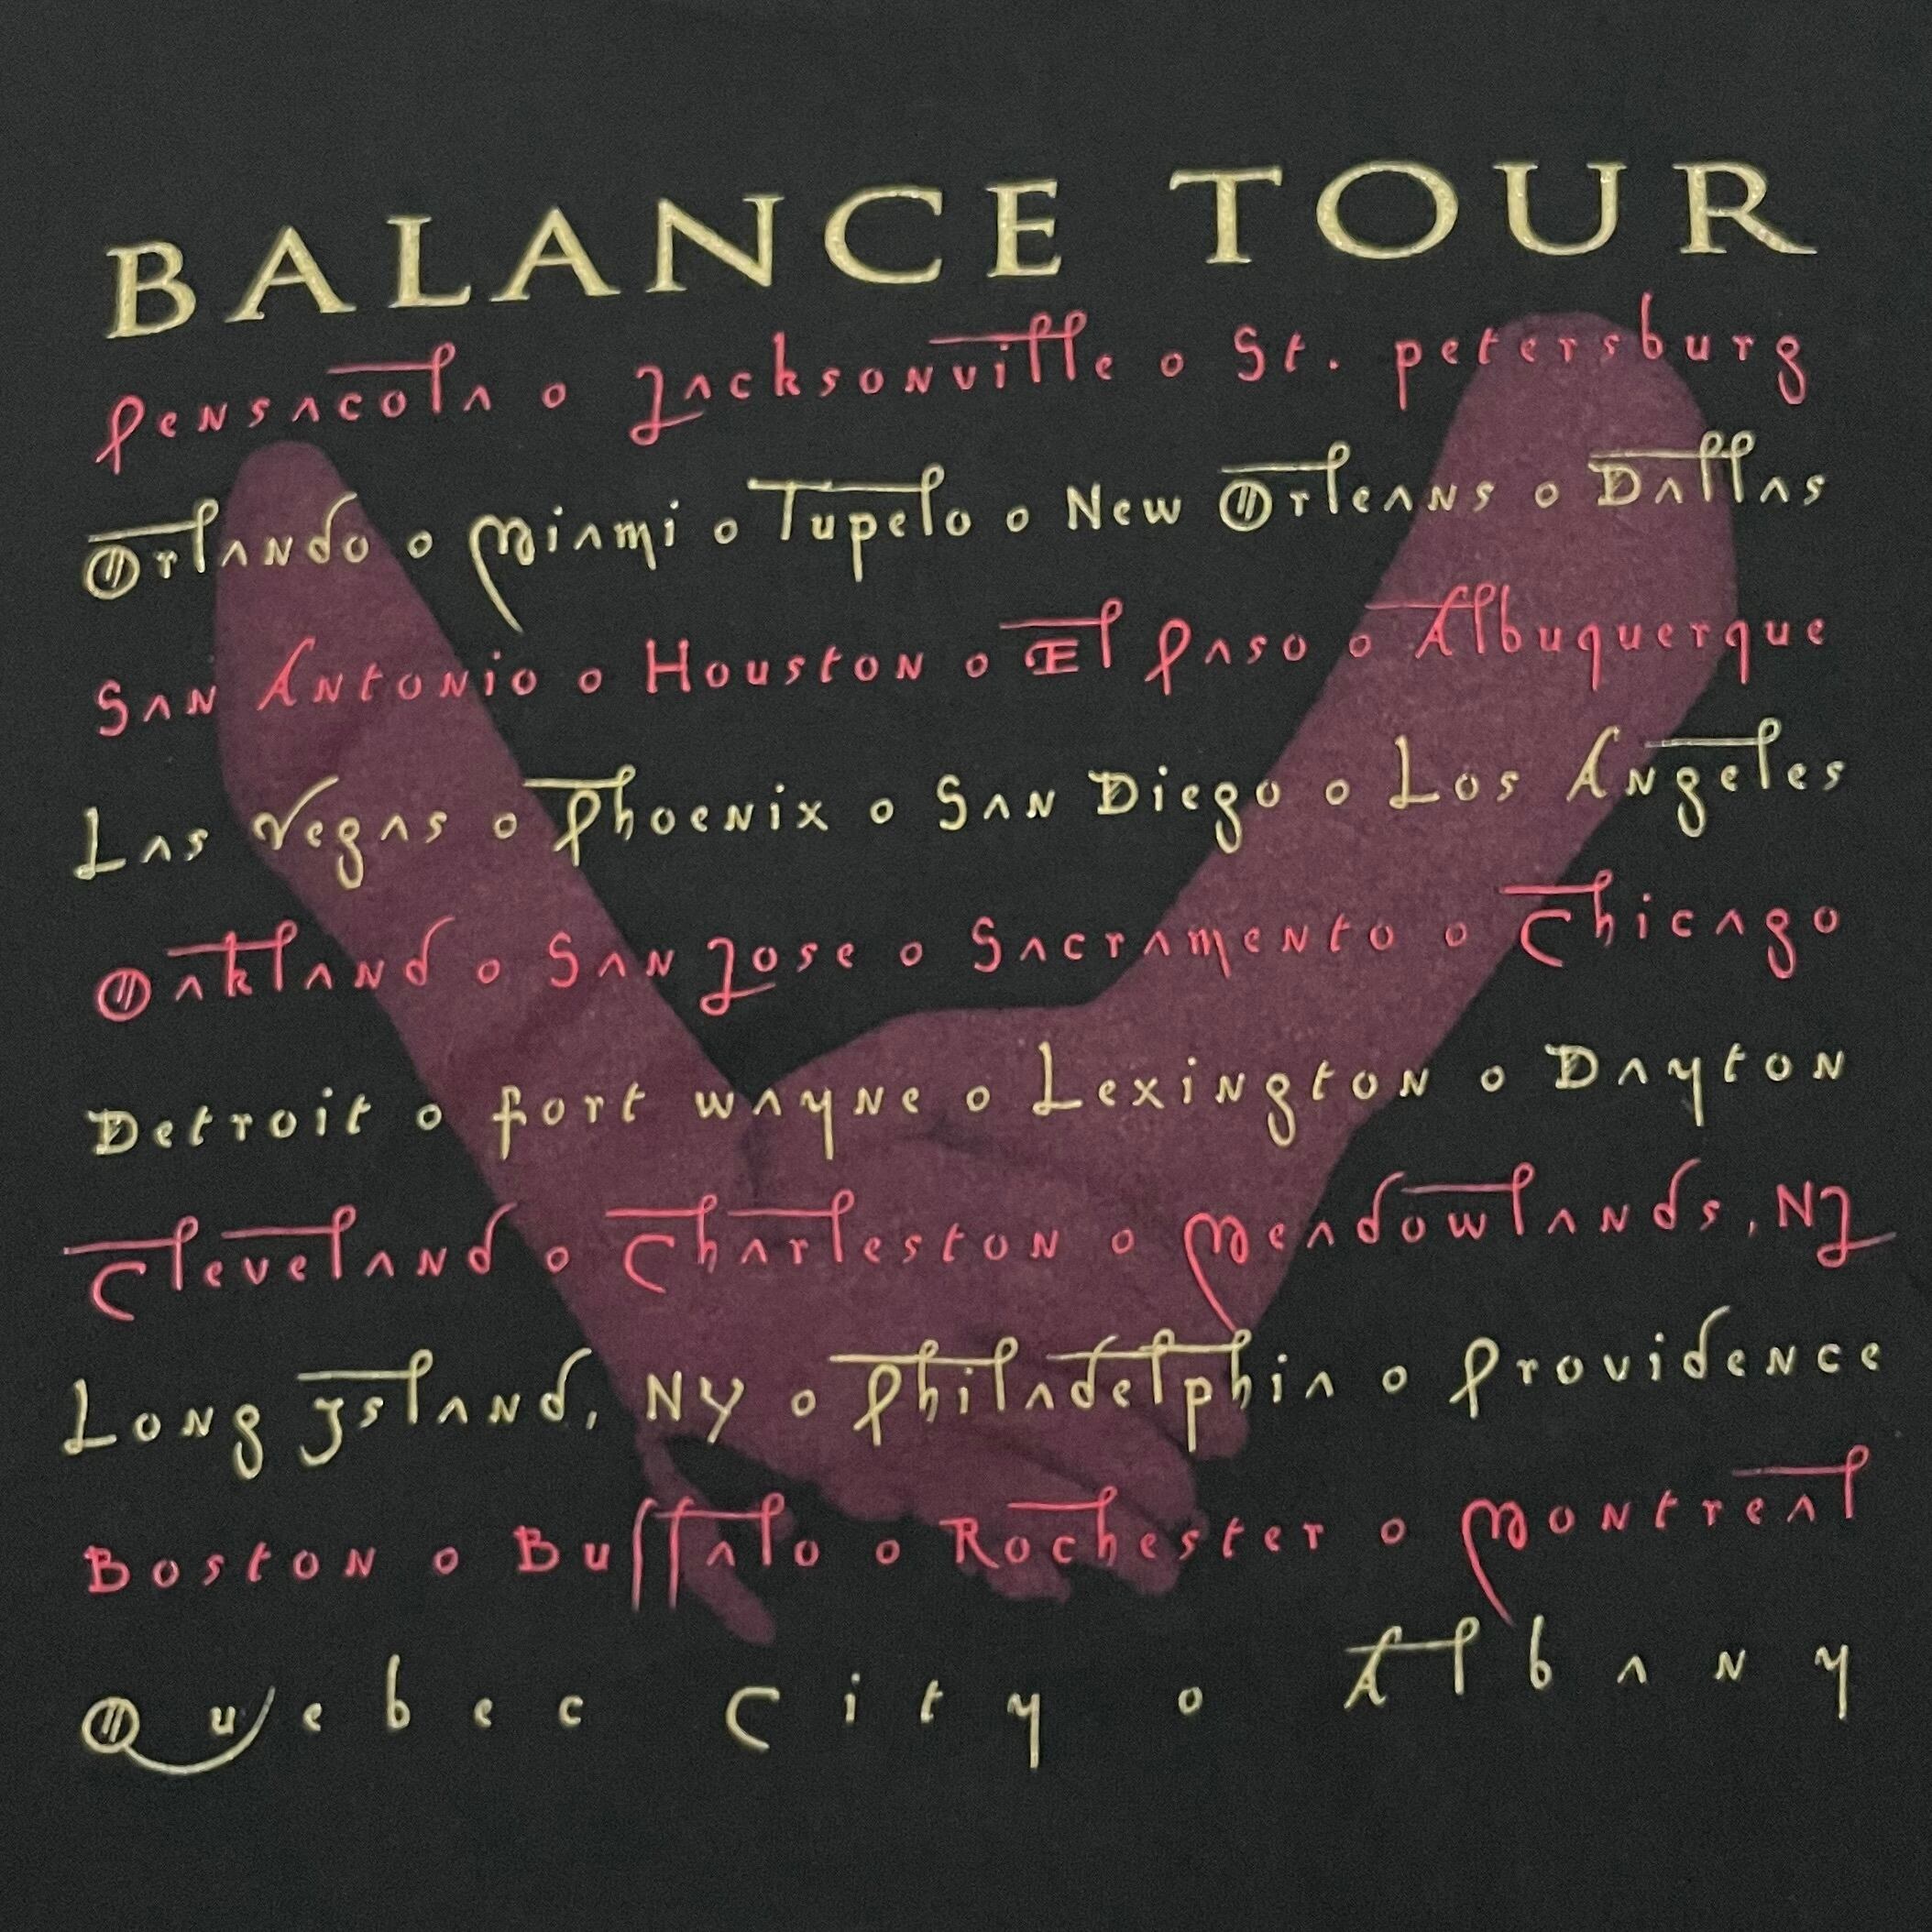 BALANCE TOUR
Pensacola o Jacksonville o St. petersburg
Orlando o Miami o Tupelo o New Orleans o Dallas
San Antonio o Houston o El Paso o Albuquerque
Las Vegas o Phoenix o San Diego o Los Angeles
Oakland o San Jose o Sacramento o Chicago
Detroit o fort wayne o Lexington o Dayton
Cleveland o Charleston o Meadowlands, NJ
Long Island, NY o Philadelphia o Providence
Boston o Buffalo o Rochester o Montreal
Quebec City o Albany